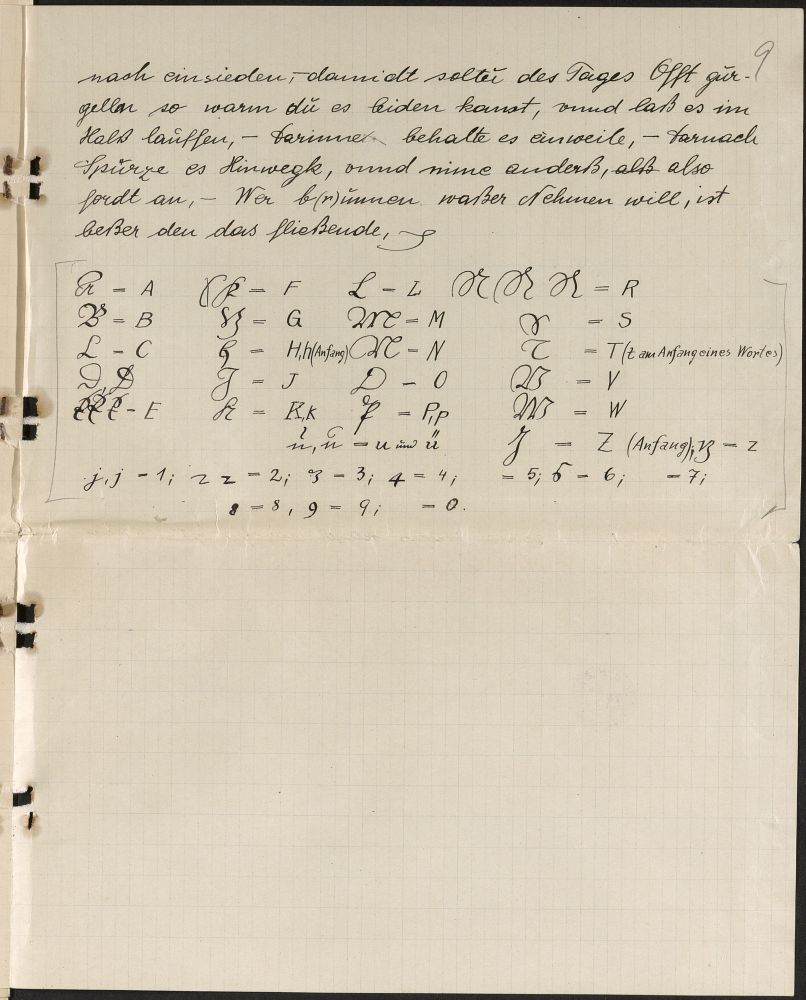 9
nach einsieden, – damidt soltu des Tages Offt gur-
gellen so warm du es leiden kanst, vnnd laß es im
Halß lauffen, – darinnen behalte es ein weile, – darnach
Spürze es Hinwegk, vnnd nime anderß, alß also
fordt an, – Wer b(r)unnen waßer Nehmen will, ist
beßer den das fließende,
A = A F = F L – L R R R = R
B = B G = G M = M S = S
C – C H = H, h (Anfang) N – N T = T (t am Anfang eines Wortes)
D, D J = J O – O V = V
E E E – E K = K, k P = P, p W = W
u, u = u und ü Z = Z (Anfang); z = z
j, j – 1; 2 2 = 2; 3 – 3; 4 = 4; = 5; 6 – 6; – 7;
8 = 8, 9 = 9; – 0.